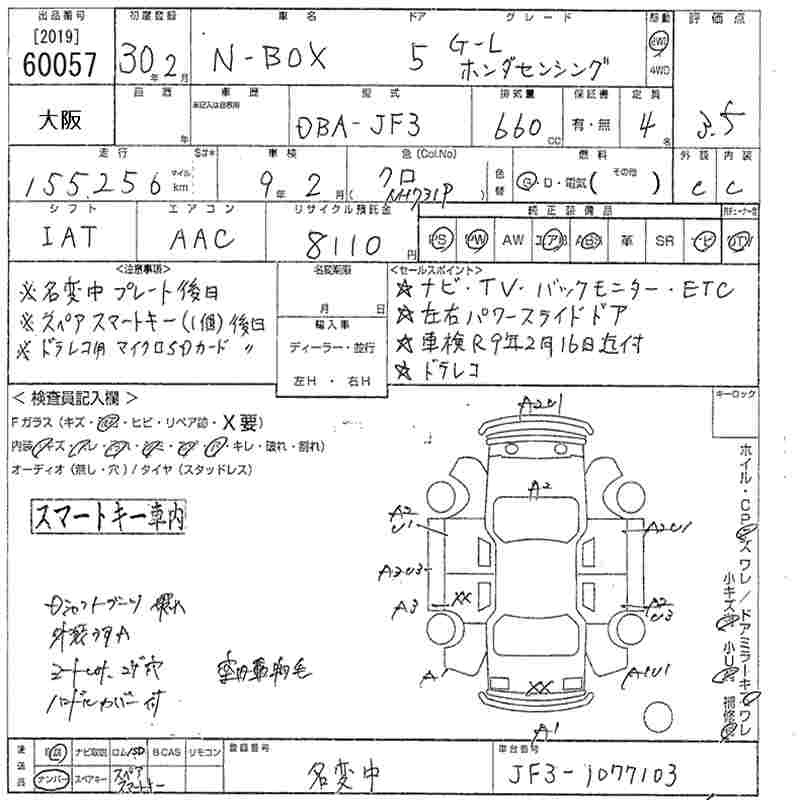 出品番号 初度登録 車名 ドア グレード 駆動 評価点
[2019]
60057 30年2月 N-BOX 5 G-L ホンダセンシング 2WD 4WD 3.5
大阪 年 車歴 未記入は自家用 型式 DBA-JF3 排気量 660cc 保証書 有・無 定員 4名
走行 155,256 マイル km 車検 9年2月 色(Col.No) クロ (NH731P) 色替 燃料 G・D・電気( その他 ) 外装 C 内装 C
シフト IAT エアコン AAC リサイクル預託金 8110円
純正装備品
PS PW AW エアB ABS 革 SR ナビ TV
<注意事項>
※名変中 プレート後日
※スペアスマートキー(1個)後日
※ドラレコ用 マイクロSDカード 〃
名変期限
月 日
輸入車
ディーラー・並行
左H ・ 右H
<セールスポイント>
☆ナビ・TV・バックモニター・ETC
☆左右パワースライドドア
☆車検R9年2月16日迄付
☆ドラレコ
< 検査員記入欄 >
Fガラス(キズ・ ・ヒビ・リペア跡・X要)
内装( ・キレ・破れ・割れ)
オーディオ(無し・穴)/タイヤ(スタッドレス)
キーロック
スマートキー車内
Dシャフトブーツ 破れ
外装ウスA
シート コゲ穴
ハンドルカバー付
室内動物毛
A2U1
A2
A2
U1
A2U1
A2U3
A3
XX
A2
U3
A1
A1U1
XX
A1
ホイル・CPキズ ワレ / ドアミラーキズ ワレ
小キズ 小U 補修跡
後送品 取説 ナビ取説 ロム/SD B-CAS リモコン
ナンバー スペアキー スペアスマートキー
登録番号 名変中
車台番号 JF3-1077103